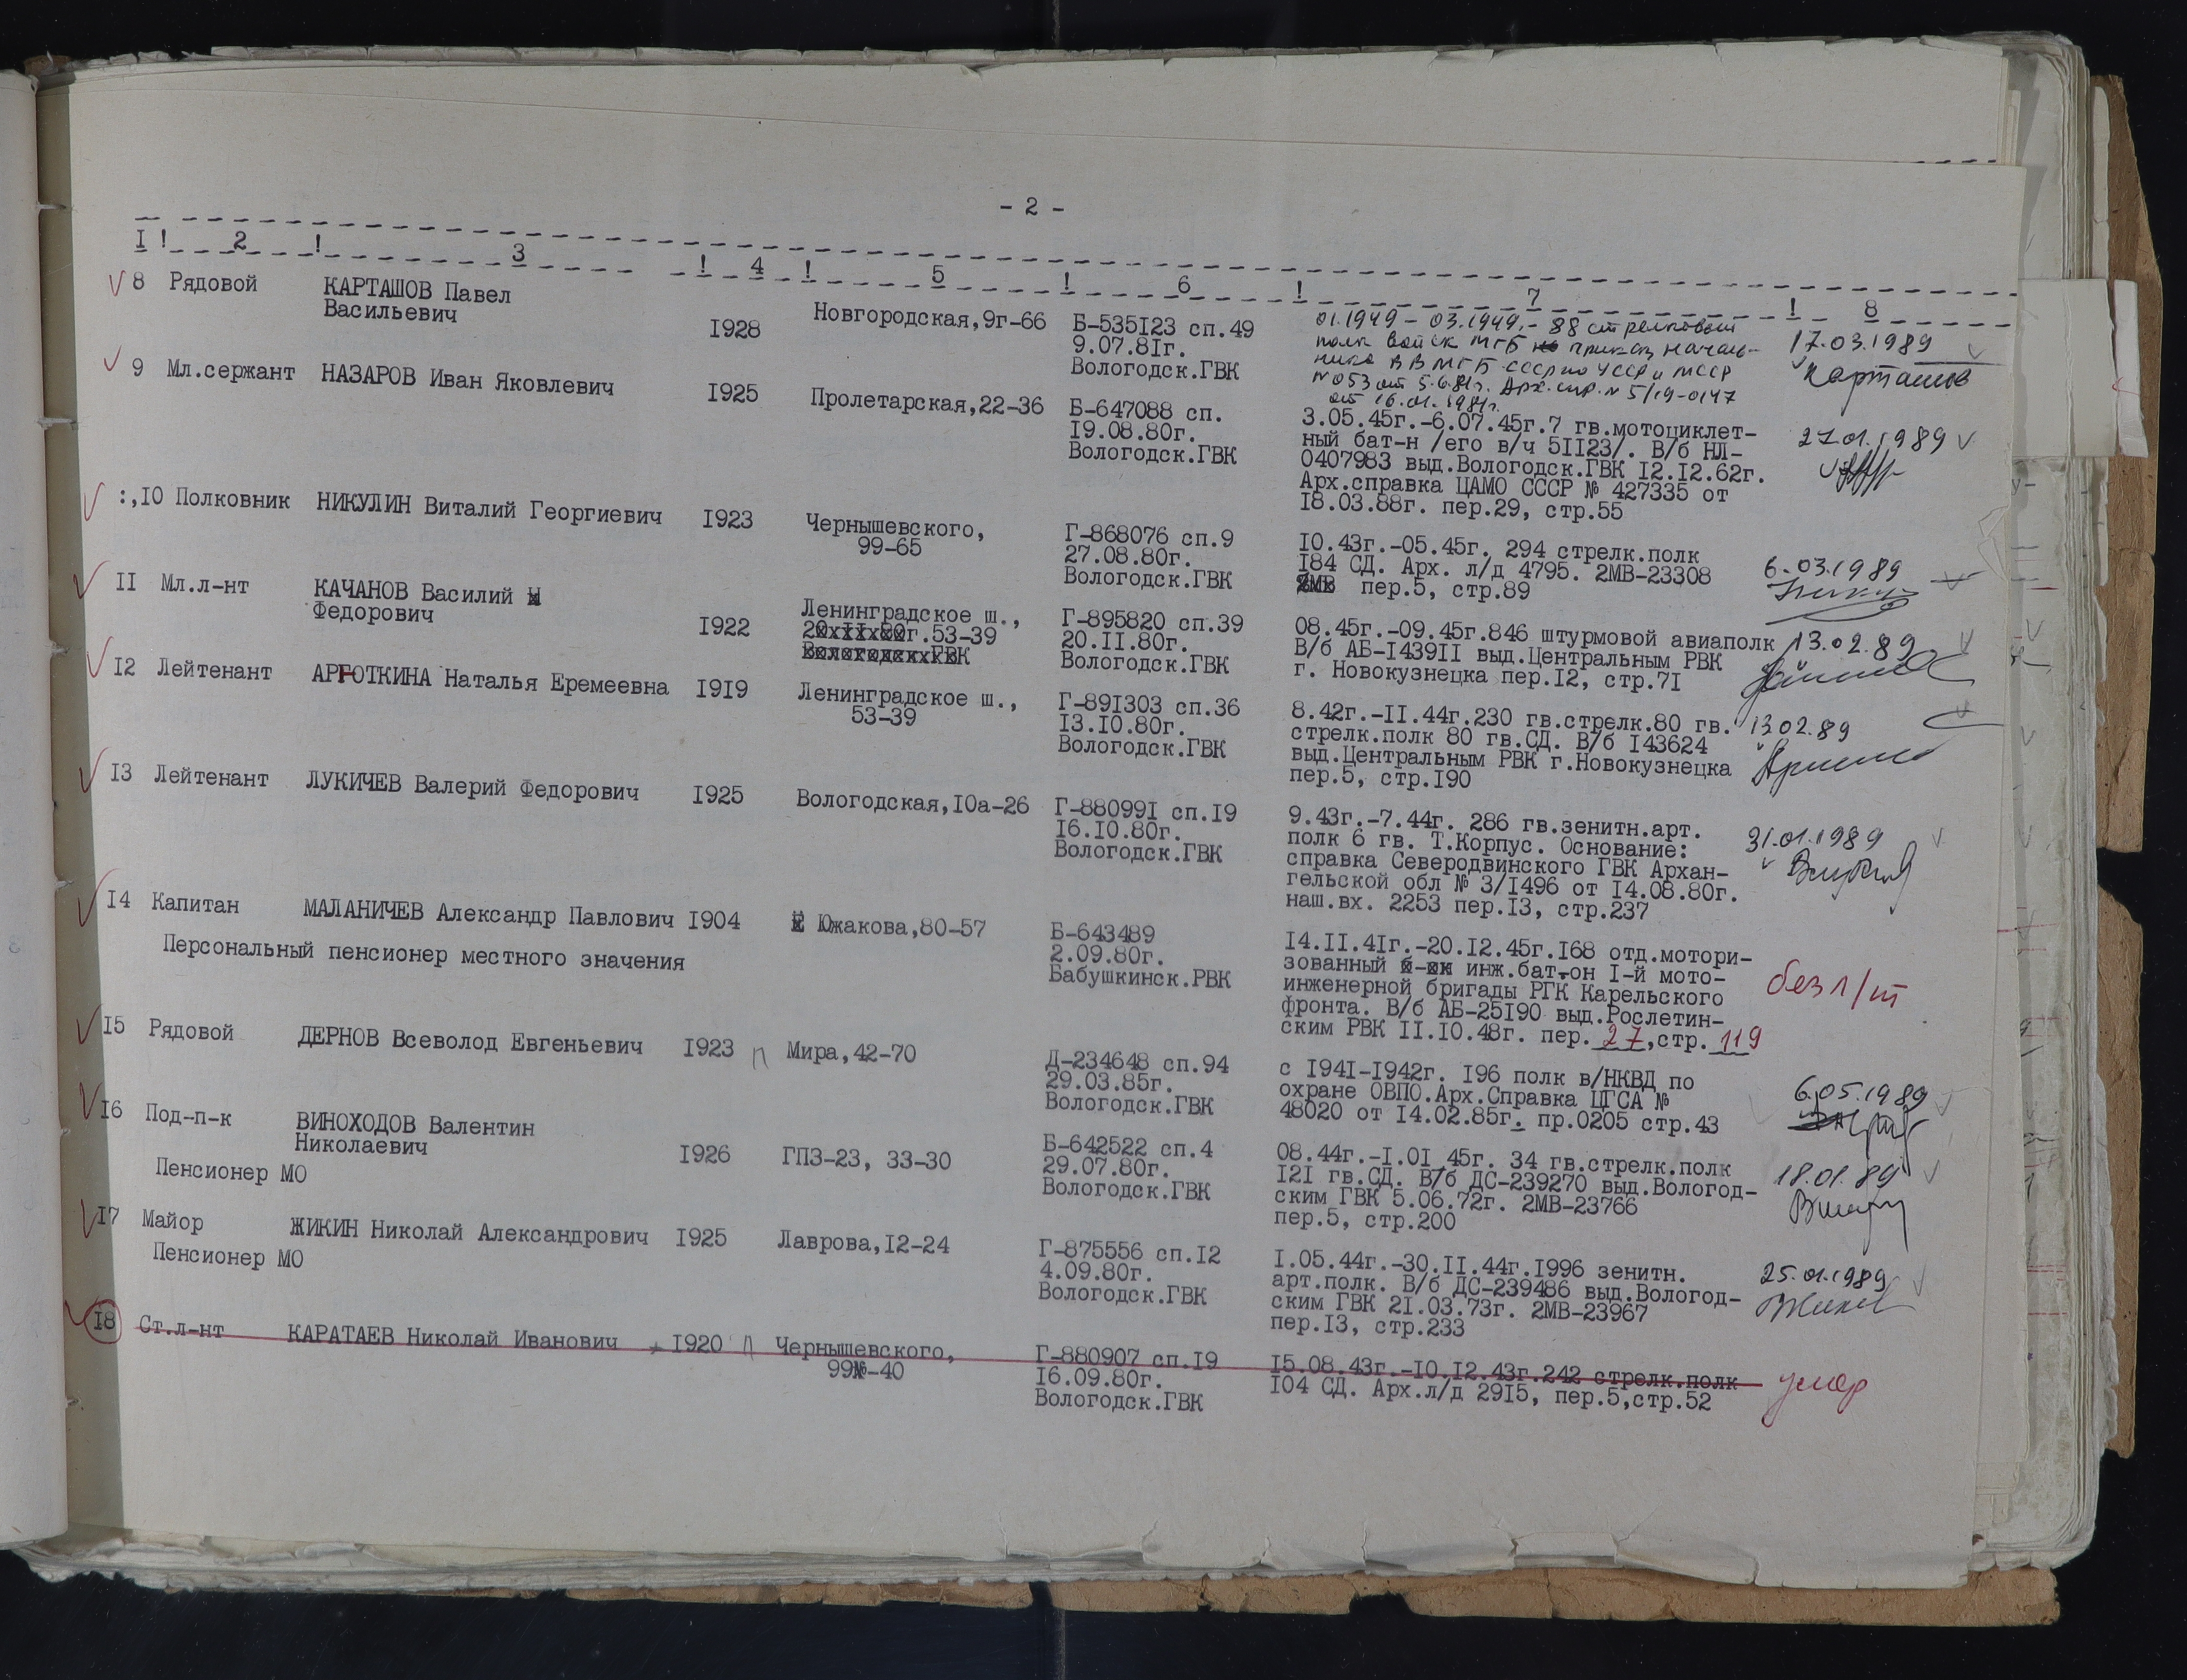 - 2 -
I ! 2 ! 3 ! 4 ! 5 ! 6 ! 7 ! 8
8 Рядовой КАРТАШОВ Павел
Васильевич
I928
Новгородская,9г-66
Б-535I23 сп.49
9.07.8Iг.
Вологодск.ГВК
01.1949 - 03.1949.- 88 стрелковый
полк войск МГБ приказ началь-
ника ВВ МГБ СССР по УССР и МССР
№ 053 от 5.6.81г. Арх. спр. № 5/19-0147
от 16.01.1981г.
17.03.1989
Карташов
9 Мл.сержант НАЗАРОВ Иван Яковлевич
I925
Пролетарская,22-36
Б-647088 сп.
I9.08.80г.
Вологодск.ГВК
3.05.45г.-6.07.45г.7 гв.мотоциклет-
ный бат-н /его в/ч 5II23/. В/б НЛ-
0407983 выд.Вологодск.ГВК I2.I2.62г.
Арх.справка ЦАМО СССР № 427335 от
I8.03.88г. пер.29, стр.55
27.01.1989
:,I0 Полковник НИКУЛИН Виталий Георгиевич
I923
Чернышевского,
99-65
Г-868076 сп.9
27.08.80г.
Вологодск.ГВК
I0.43г.-05.45г. 294 стрелк.полк
I84 СД. Арх. л/д 4795. 2МВ-23308
пер.5, стр.89
6.03.1989
II Мл.л-нт КАЧАНОВ Василий
Федорович
I922
Ленинградское ш.,
г.53-39
Г-895820 сп.39
20.II.80г.
Вологодск.ГВК
08.45г.-09.45г.846 штурмовой авиаполк
В/б АБ-I439II выд.Центральным РВК
г. Новокузнецка пер.I2, стр.7I
13.02.89
I2 Лейтенант АРГОТКИНА Наталья Еремеевна
I9I9
Ленинградское ш.,
53-39
Г-89I303 сп.36
I3.I0.80г.
Вологодск.ГВК
8.42г.-II.44г.230 гв.стрелк.80 гв.
стрелк.полк 80 гв.СД. В/б I43624
выд.Центральным РВК г.Новокузнецка
пер.5, стр.I90
13.02.89
I3 Лейтенант ЛУКИЧЕВ Валерий Федорович
I925
Вологодская,I0а-26
Г-88099I сп.I9
I6.I0.80г.
Вологодск.ГВК
9.43г.-7.44г. 286 гв.зенитн.арт.
полк 6 гв. Т.Корпус. Основание:
справка Северодвинского ГВК Архан-
гельской обл № 3/I496 от I4.08.80г.
наш.вх. 2253 пер.I3, стр.237
31.01.1989
I4 Капитан МАЛАНИЧЕВ Александр Павлович I904
Персональный пенсионер местного значения
Южакова,80-57
Б-643489
2.09.80г.
Бабушкинск.РВК
I4.II.4Iг.-20.I2.45г.I68 отд.мотори-
зованный инж.бат-он I-й мото-
инженерной бригады РГК Карельского
фронта. В/б АБ-25I90 выд.Рослетин-
ским РВК II.I0.48г. пер. 27,стр. 119
без л/т
I5 Рядовой ДЕРНОВ Всеволод Евгеньевич
I923 П
Мира,42-70
Д-234648 сп.94
29.03.85г.
Вологодск.ГВК
с I94I-I942г. I96 полк в/НКВД по
охране ОВПО.Арх.Справка ЦГСА №
48020 от I4.02.85г. пр.0205 стр.43
6.05.1989
I6 Под-п-к ВИНОХОДОВ Валентин
Николаевич
Пенсионер МО
I926
ГПЗ-23, 33-30
Б-642522 сп.4
29.07.80г.
Вологодск.ГВК
08.44г.-I.0I 45г. 34 гв.стрелк.полк
I2I гв.СД. В/б ДС-239270 выд.Вологод-
ским ГВК 5.06.72г. 2МВ-23766
пер.5, стр.200
18.01.89
I7 Майор ЖИКИН Николай Александрович
Пенсионер МО
I925
Лаврова,I2-24
Г-875556 сп.I2
4.09.80г.
Вологодск.ГВК
I.05.44г.-30.II.44г.I996 зенитн.
арт.полк. В/б ДС-239486 выд.Вологод-
ским ГВК 2I.03.73г. 2МВ-23967
пер.I3, стр.233
25.01.1989
I8 Ст.л-нт КАРАТАЕВ Николай Иванович
I920 П
Чернышевского,
99-40
Г-880907 сп.I9
I6.09.80г.
Вологодск.ГВК
I5.08.43г.-I0.I2.43г.242 стрелк.полк
I04 СД. Арх.л/д 29I5, пер.5,стр.52
умер